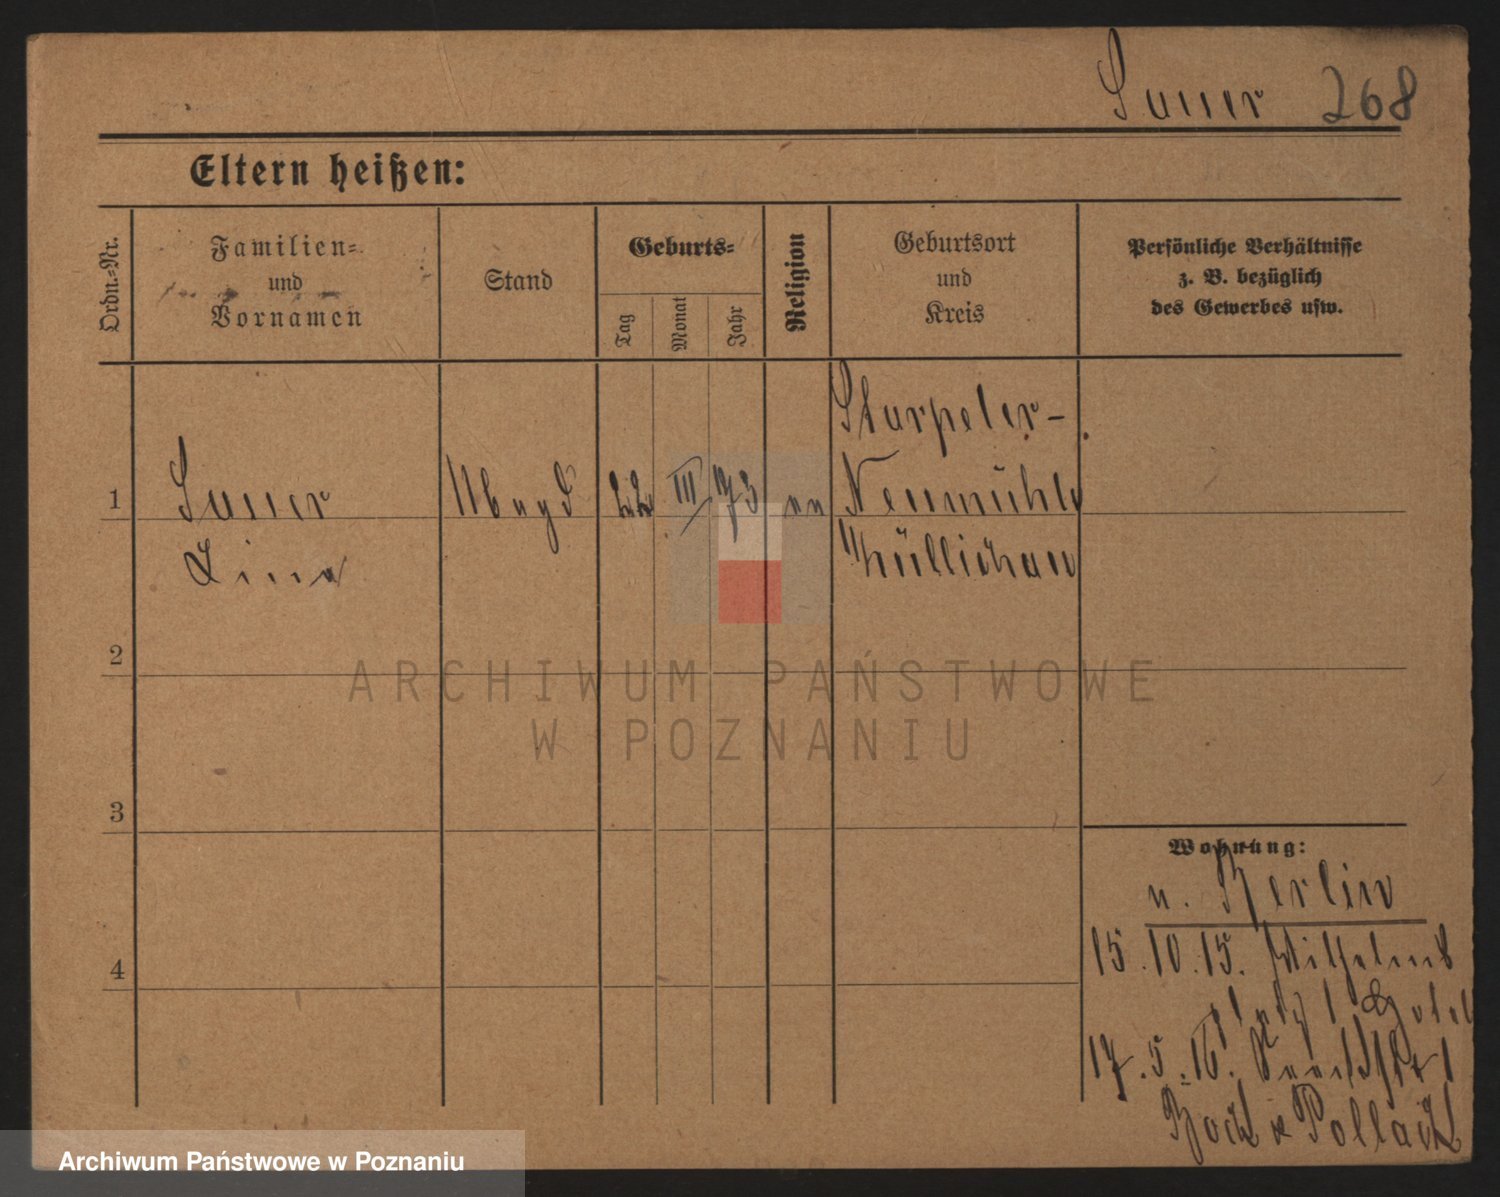 Sauer 268
Eltern heißen:
Ordn.-Nr.
Familien-
und
Vornamen
Stand
Geburts-
Tag
Monat
Jahr
Religion
Geburtsort
und
Kreis
Persönliche Verhältnisse
z. B. bezüglich
des Gewerbes usw.
1
Sauer
Lina
Magd
22
III
73
ev
Neumühle
Züllichau
2
3
4
Wohnung:
n. Berlin
15.10.15. Wilhelms
platz 1 Hotel
17.5.16.
Bock & Pollack
ARCHIWUM PAŃSTWOWE
W POZNANIU
Archiwum Państwowe w Poznaniu